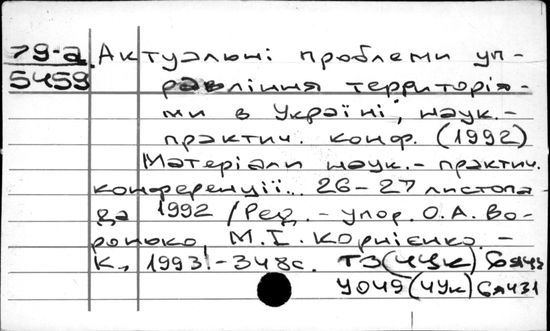 79-а
5459
Актуальні проблеми уп-
равління територія-
ми в Україні, наук.-
практич. конф. (1992)
Матеріали наук.-практич.
конференції.. 26-27 листопа
да 1992 /Ред.-упор. О.А. Во-
ронько, М.І. Корнієнко.-
К., 1993.-348с. Т3(4Ук)
У049(4Ук) 6я431